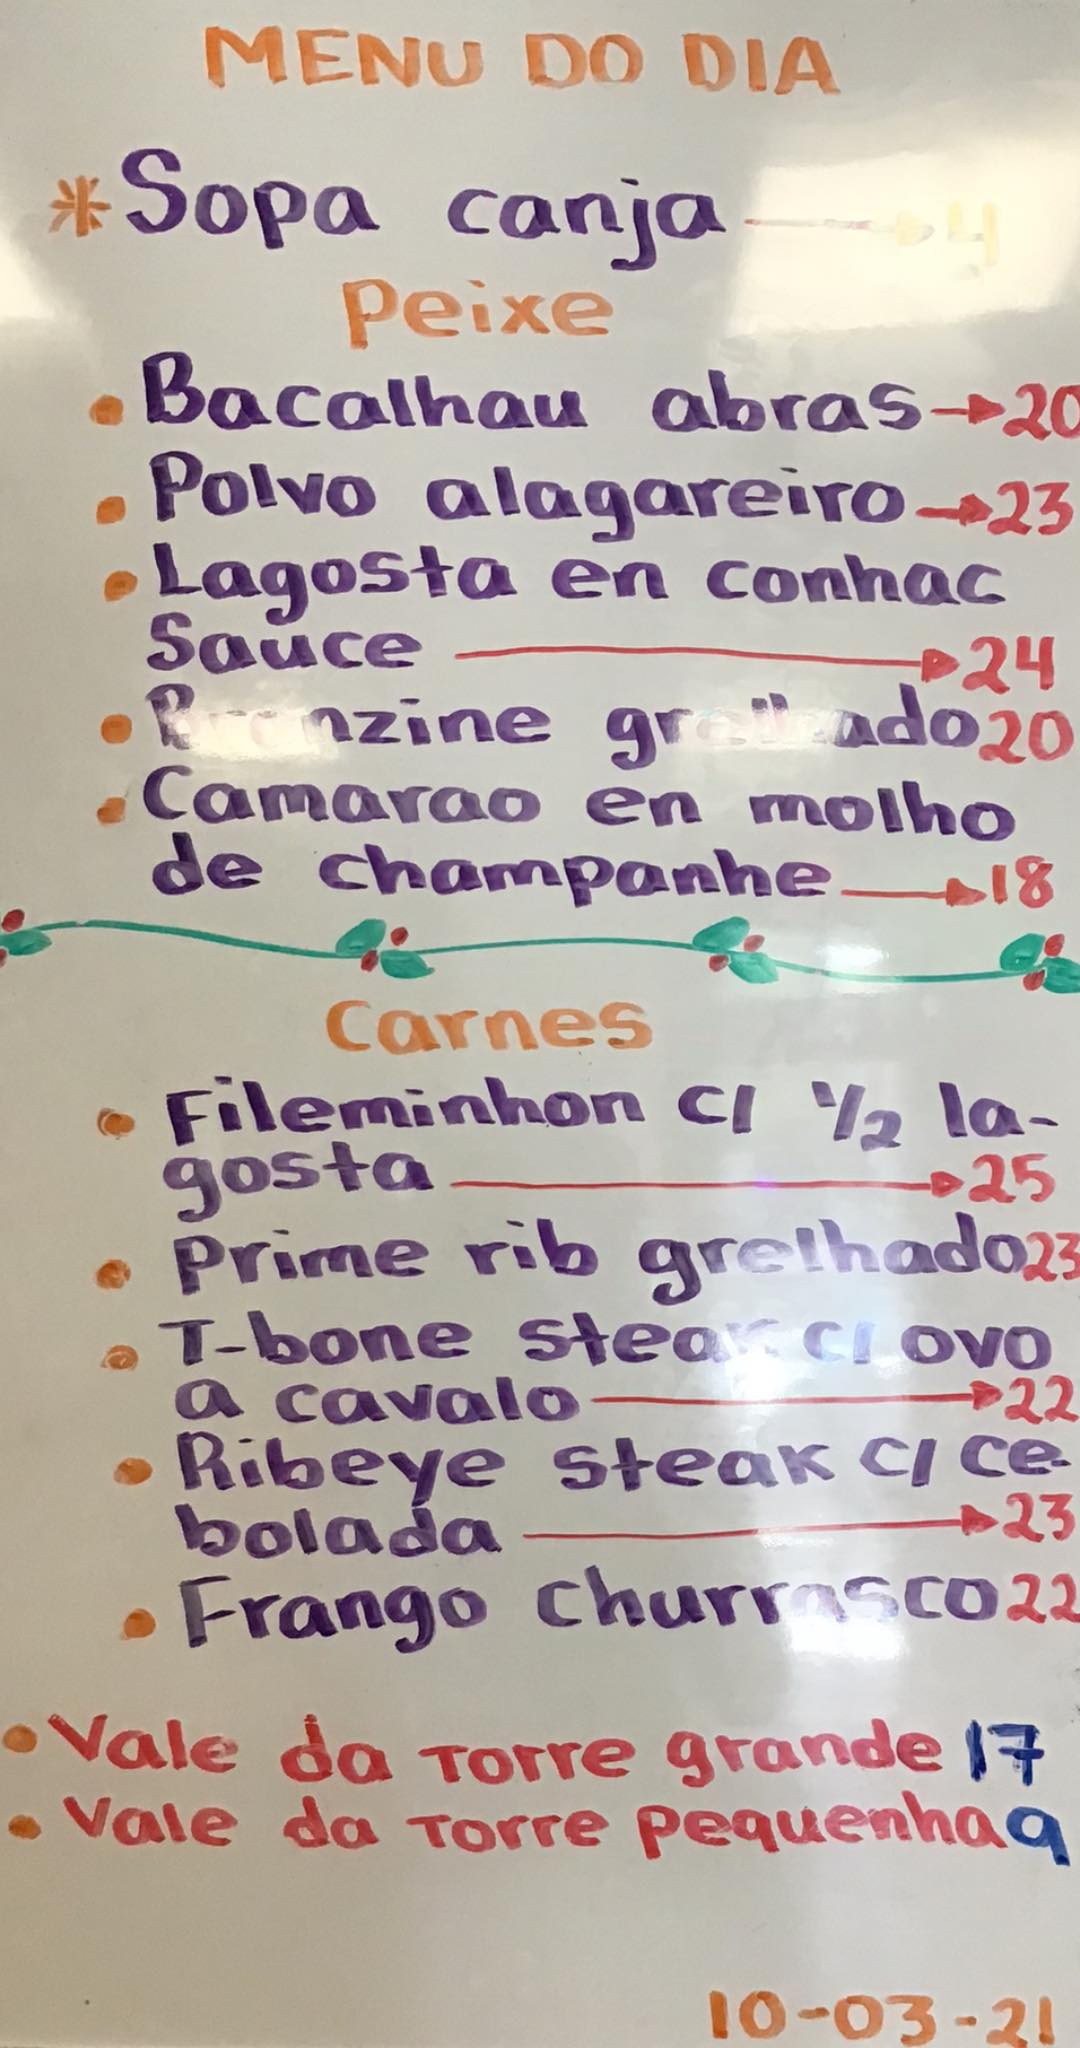 MENU DO DIA
* Sopa canja → 4
Peixe
• Bacalhau abras → 20
• Polvo alagareiro → 23
• Lagosta en conhac
sauce → 24
• Bronzine grelhado 20
• Camarao en molho
de champanhe → 18
Carnes
• Fileminhon C/ 1/2 la-
gosta → 25
• Prime rib grelhado 23
• T-bone steak c/ ovo
a cavalo → 22
• Ribeye steak C/ Ce-
bolada → 23
• Frango churrasco 22
• Vale da Torre grande 17
• Vale da Torre pequenha 9
10-03-21